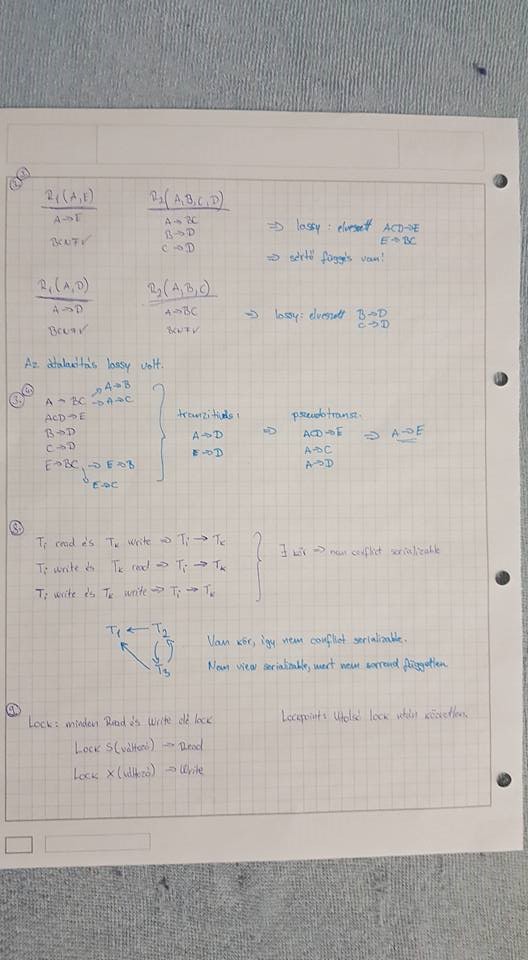 2. 3.
R₁(A,E) R₂(A,B,C,D)
A→E A→BC
B→D
BCNF✓ C→D
⇒ lossy: elveszett ACD→E
E→BC
⇒ sértő függés van!
R₁(A,D) R₂(A,B,C)
A→D A→BC
BCNF✓ BCNF✓
⇒ lossy: elveszett B→D
C→D
Az átalakítás lossy volt.
3. 4.
A→BC → A→B
→ A→C
ACD→E
B→D
C→D
E→BC → E→B
E→C
tranzitivitás:
A→D
E→D
⇒ pseudotransz.
ACD→E
A→C
A→D
⇒ A→E
8.
Tᵢ read és Tₖ write ⇒ Tᵢ → Tₖ
Tᵢ write és Tₖ read ⇒ Tᵢ → Tₖ
Tᵢ write és Tₖ write ⇒ Tᵢ → Tₖ
∃ kör ⇒ nem conflict serializable
T₁ ← T₂
T₃
Van kör, így nem conflict serializable.
Nem view serializable, mert nem sorrend független.
9.
Lock: minden Read és Write elé lock
Lock S(változó) → Read
Lock X(változó) → Write
Lockpoint: Utolsó lock után közvetlen.